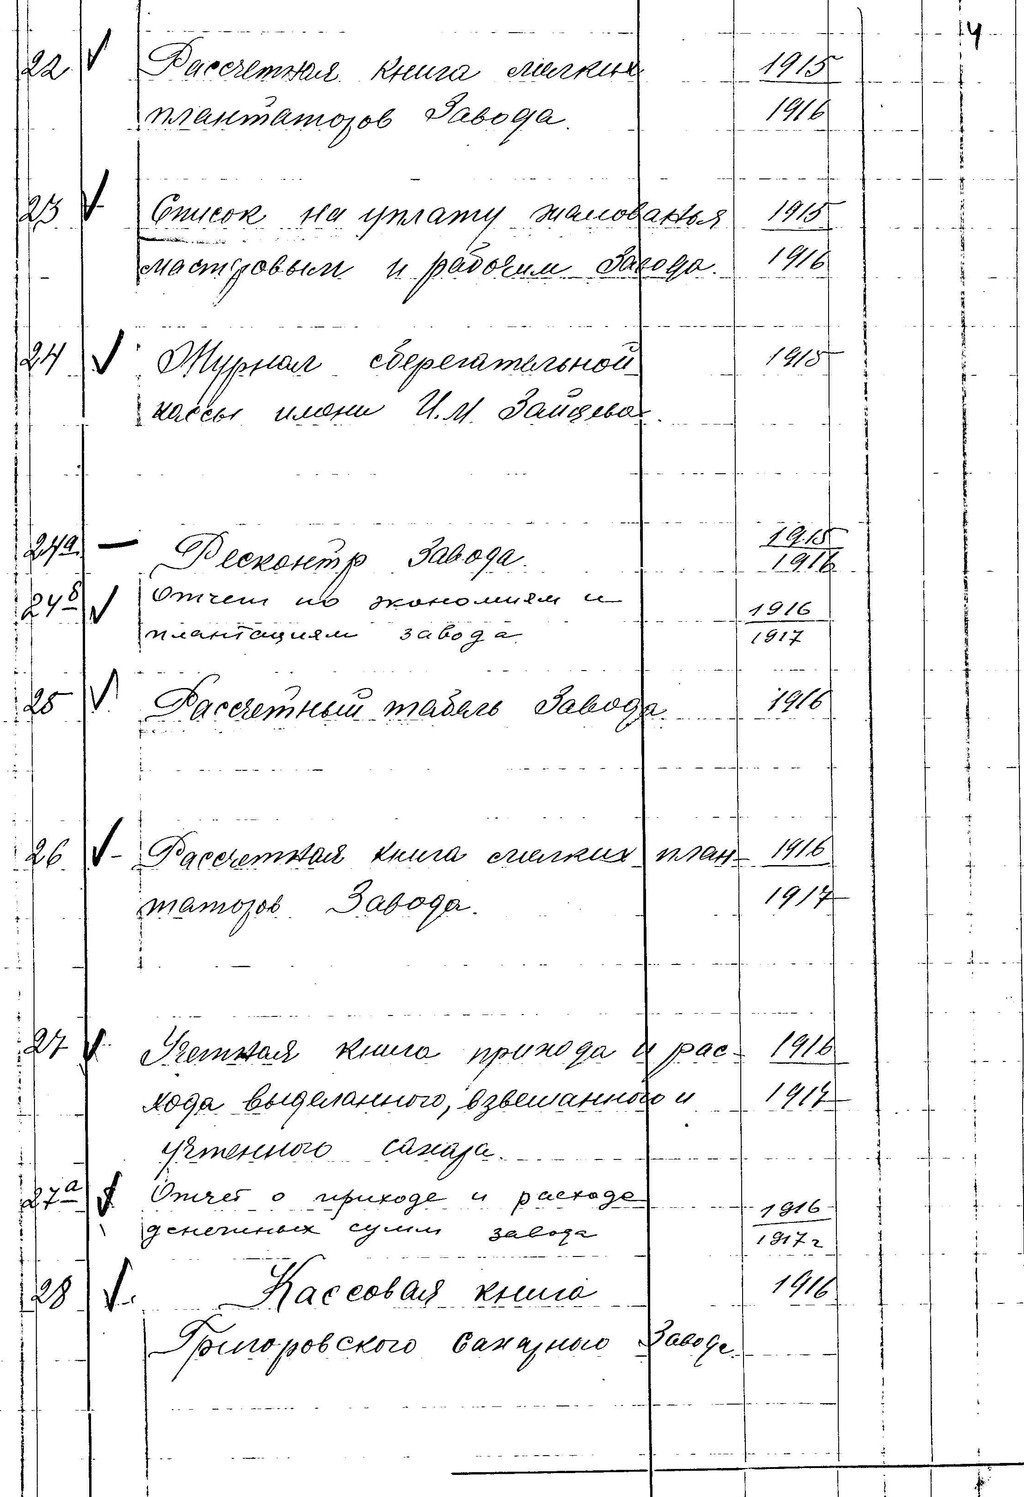 4
22 √ Рассчетная книга мелких 1915
плантаторов Завода. 1916
23 √ Список на уплату жалованья 1915
мастеровым и рабочим Завода. 1916
24 √ Журнал сберегательной 1915
кассы имени И.М. Зайцева.
24а — Ресконтр Завода. 1915
1916
24б √ Отчет по экономиям и 1916
плантациям завода 1917
25 √ Рассчетный табель Завода 1916
26 √ Рассчетная книга мелких план- 1916
таторов Завода. 1917
27 √ Учетная книга прихода и рас- 1916
хода выделанного, взвешанного и 1917
учтенного сахара.
27а √ Отчет о приходе и расходе 1916
денежных сумм завода 1917 г
28 √ Кассовая книга 1916
Григоровского Сахарного Завода.